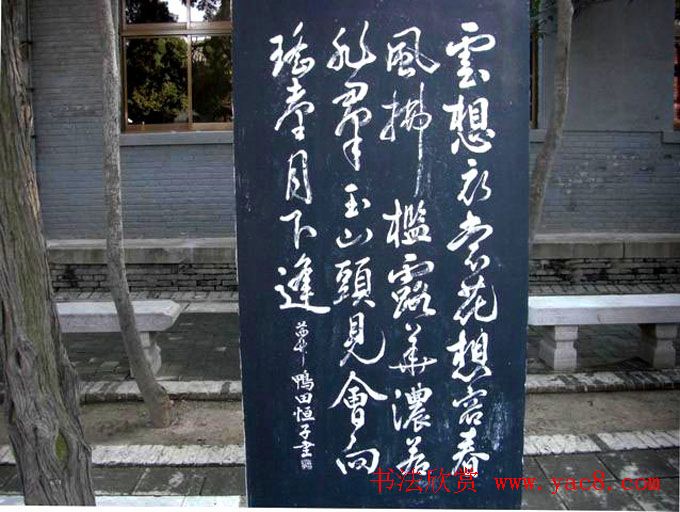 雲想衣裳花想容春
風拂檻露華濃若
非羣玉山頭見會向
瑤臺月下逢
鴨田恒子書
书法欣赏 www.yac8.com